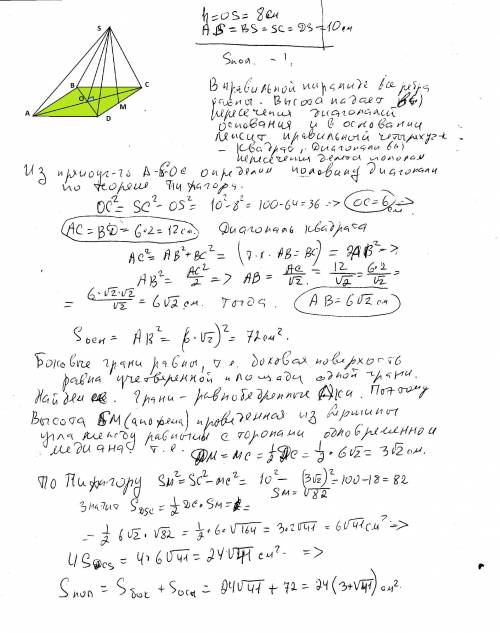 S
B
C
O
M
A
D
h=OS=8см
AS=BS=SC=DS=10см
Sпол. - ?
В правильной пирамиде все ребра
равны. Высота падает в
пересечения диагоналей
основания и в основании
лежит правильный четырехуг-
- квадрат, диагонали в
пересечении делятся пополам
Из прямоуг-го ∆-SOC определим половину диагонали
по теореме Пифагора.
OC²= SC² - OS² = 10²-8²=100-64=36 => OC=6 см
AC=BD=6·2=12см. Диагональ квадрата
AC²=AB²+BC²=(т.к. AB=BC)=2AB² =>
AB²=AC²/2 => AB=AC/√2=12/√2=6·2/√2=
=6·√2·√2/√2=6√2см. тогда. AB=6√2см
Sосн= AB²=(6·√2)²=72см².
Боковые грани равны, т.е. боковая поверхность
равна учетверенной площади одной грани.
Найдем ее. Грани - равнобедренные ∆ки. Поэтому
Высота SM (апофема) проведенная из вершины
угла между равными сторонами одновременно и
медиана т.е. DM=MC=½DC=½·6√2=3√2см.
По Пифагору SM²=SC²-MC²=10²-(3√2)²=100-18=82
SM=√82
значит SDSC=½DC·SM=
=½6√2·√82=½·6·√164=3·2√41=6√41см² =>
4SDCS=4·6√41=24√41см² =>
Sпол=Sбок+Sосн=24√41+72=24(3+√41)см².